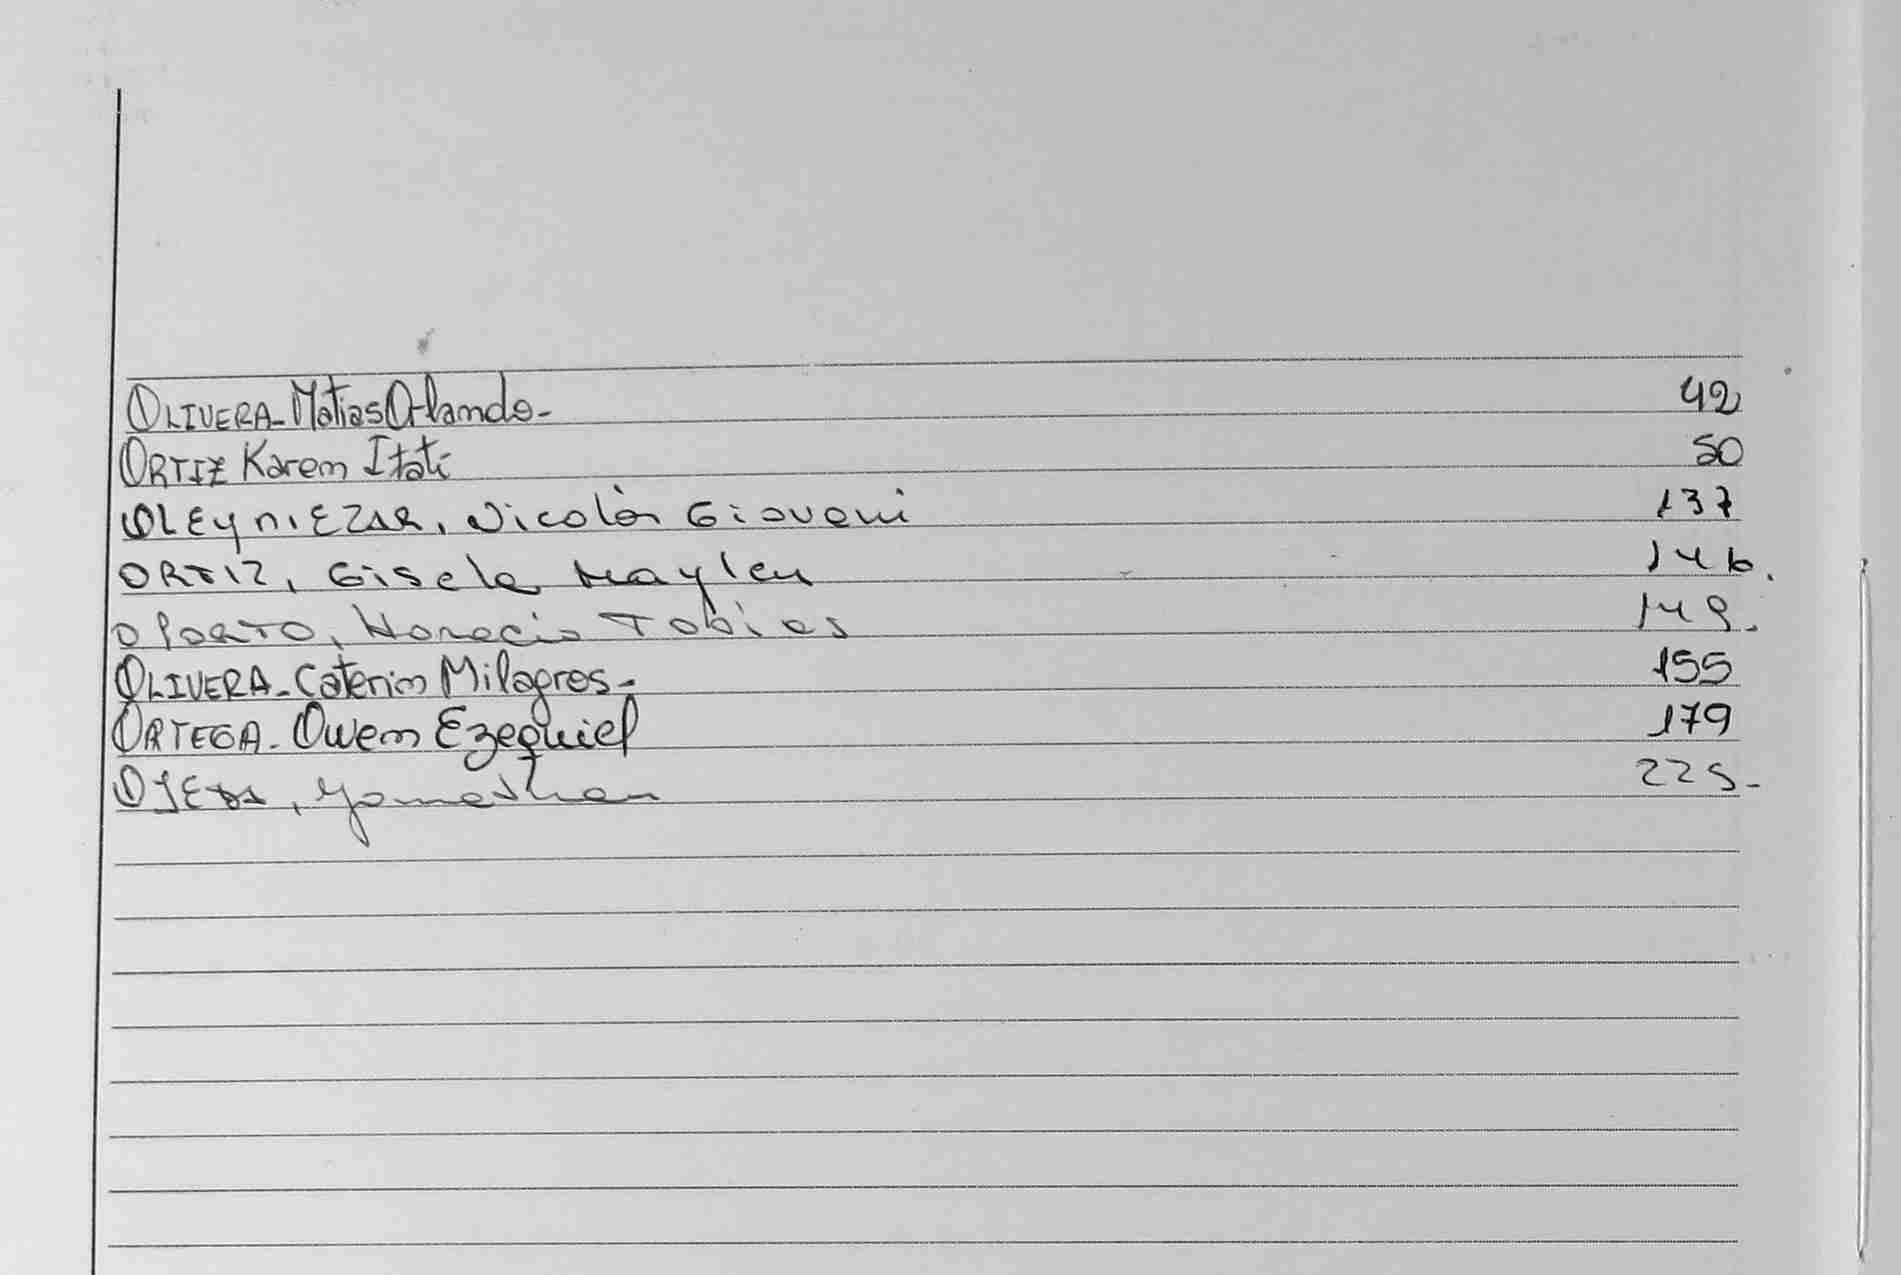 OLIVERA - Matias Orlando - 42
ORTIZ Karem Itatí 50
OLEYNIEZAR, Nicolás Giovani 137
ORTIZ, Gisela Maylen 146.
OPORTO, Horacio Tobias 149.
OLIVERA - Caterin Milagros - 155
ORTEGA - Owen Ezequiel 179
OJEDA, 225-